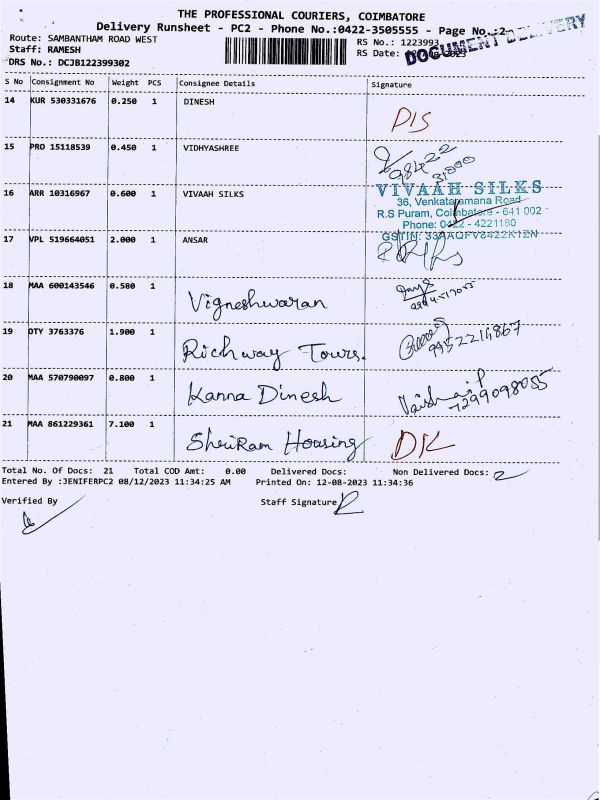 THE PROFESSIONAL COURIERS, COIMBATORE
Delivery Runsheet - PC2 - Phone No.:0422-3505555 - Page No.:2
DOCUMENT DELIVERY
Route: SAMBANTHAM ROAD WEST RS No.: 1223993
Staff: RAMESH RS Date:
DRS No.: DCJB122399302
S No Consignment No Weight PCS Consignee Details Signature
14 KUR 530331676 0.250 1 DINESH
15 PRO 15118539 0.450 1 VIDHYASHREE
98422
16 ARR 10316967 0.600 1 VIVAAH SILKS
VIVAAH SILKS
36, Venkataramana Road
R.S Puram, Coimbatore - 641 002
Phone: 0422 - 4221180
GSTIN: 33AAQFV8422K1ZN
17 VPL 519664051 2.000 1 ANSAR
18 MAA 600143546 0.580 1 Vigneshwaran
19 DTY 3763376 1.900 1 Richway Tours.
9952214867
20 MAA 570790097 0.800 1 Kanna Dinesh
7299098055
21 MAA 861229361 7.100 1 ShriRam Housing
Total No. Of Docs: 21 Total COD Amt: 0.00 Delivered Docs: Non Delivered Docs: 2
Entered By :JENIFERPC2 08/12/2023 11:34:25 AM Printed On: 12-08-2023 11:34:36
Verified By Staff Signature